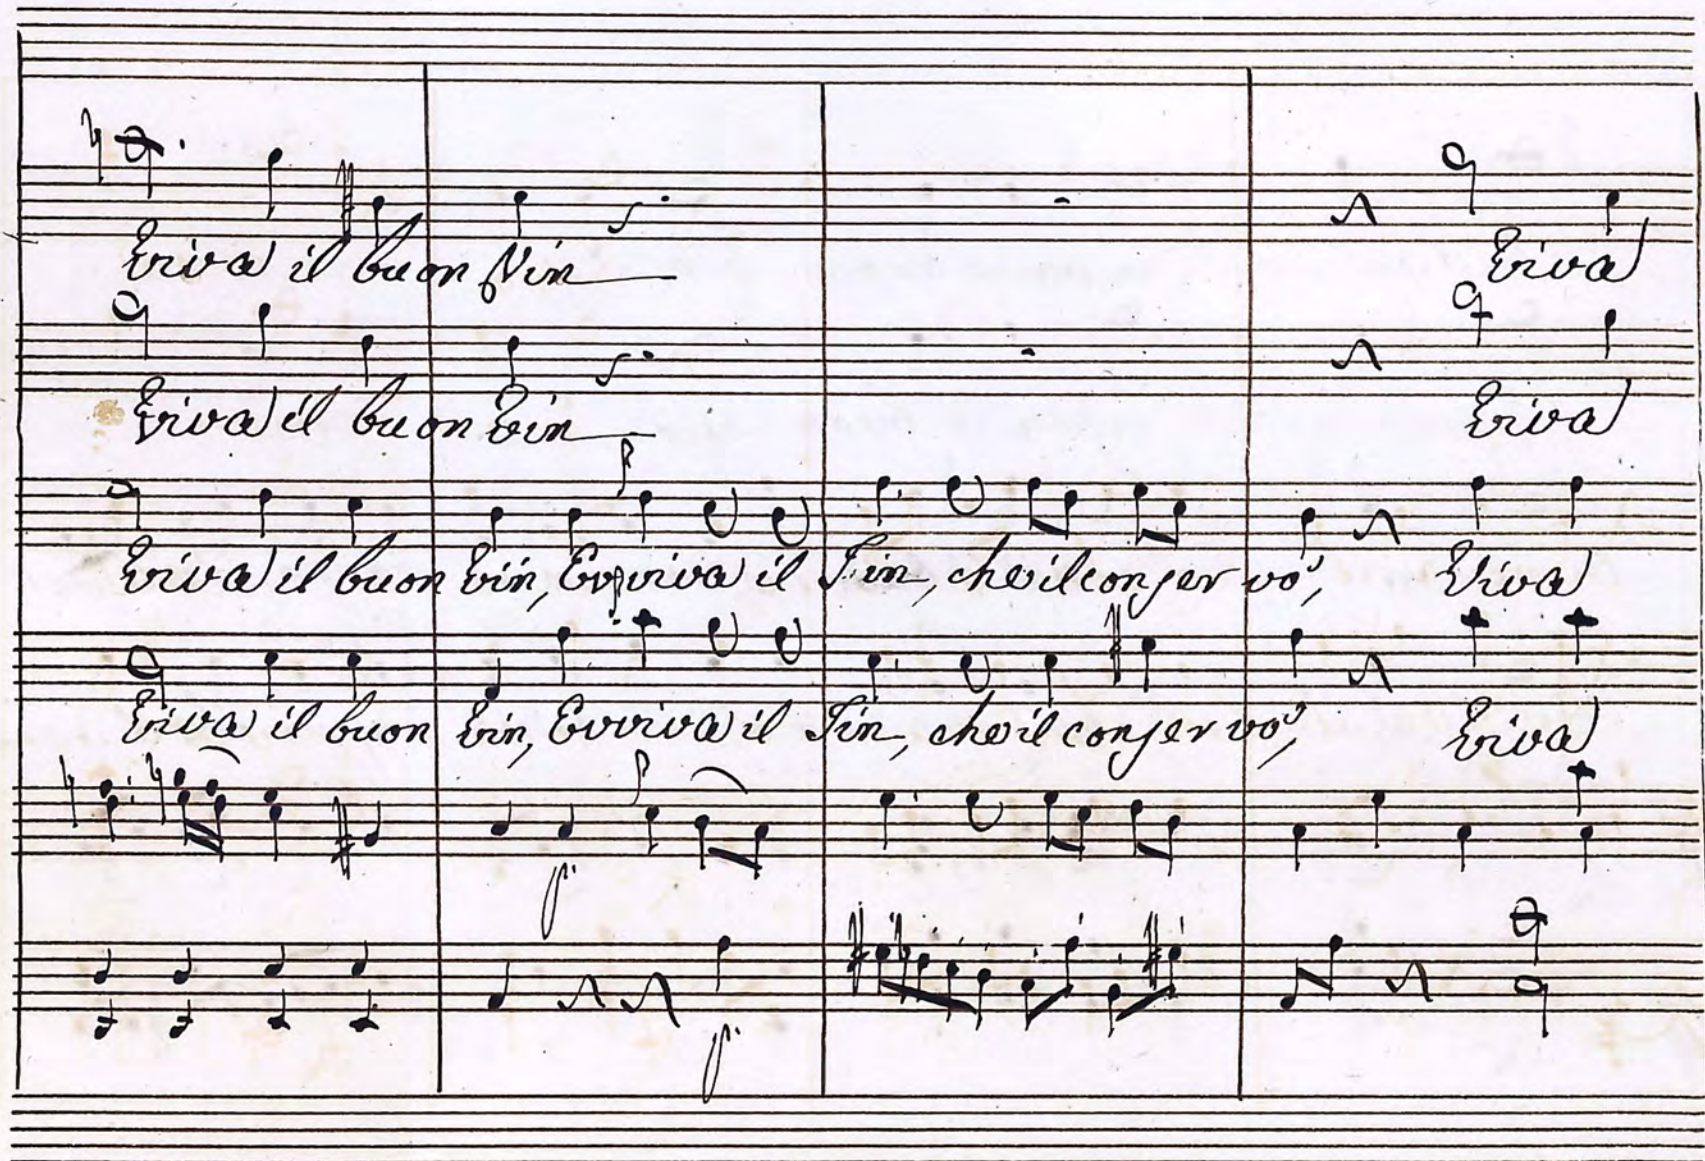 Eviva il buon Vin Eviva
Eviva il buon Vin Eviva
Eviva il buon Vin, Evviva il Tin, che il conservò, Eviva
Eviva il buon Vin, Evviva il Tin, che il conservò, Eviva
p.
p.